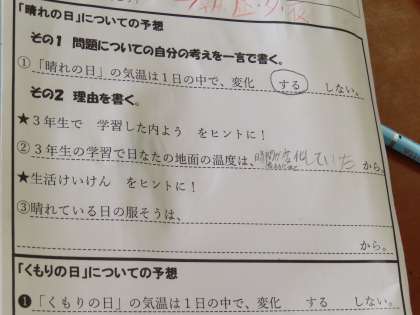 「晴れの日」についての予想
その1 問題についての自分の考えを一言で書く。
①「晴れの日」の気温は1日の中で、変化 する しない。
その2 理由を書く。
★3年生で 学習した内よう をヒントに!
②3年生の学習で日なたの地面の温度は、時間が変化していた から。
★生活けいけん をヒントに!
③晴れている日の服そうは、
から。
「くもりの日」についての予想
❶「くもりの日」の気温は1日の中で、変化 する しない。